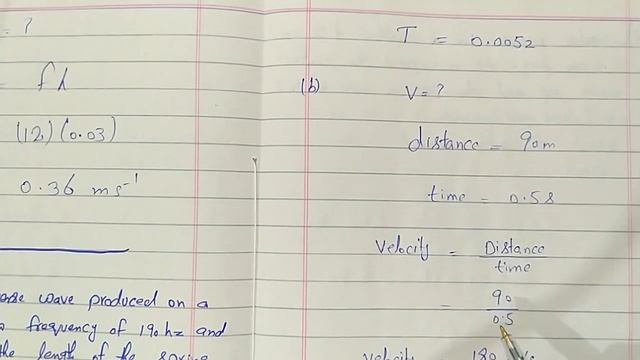 = ?
= fλ
(12)(0.03)
0.36 ms⁻¹
wave produced on a
frequency of 190 hz and
the length of the
T = 0.0052
(b)
V = ?
distance = 90m
time = 0.5s
Velocity = Distance
time
= 90
0.5
velocity 180